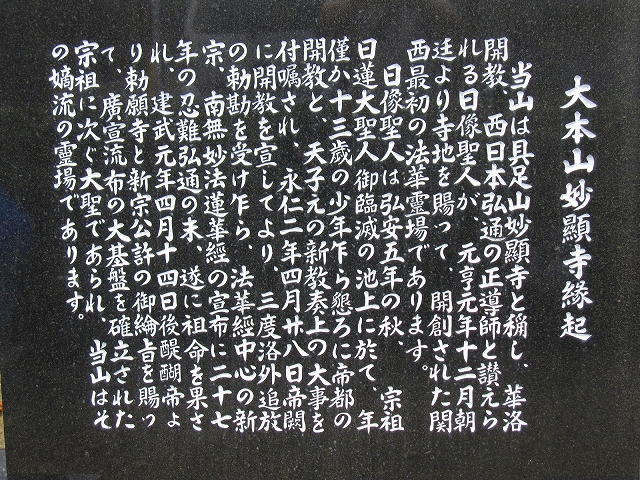 大本山妙顯寺縁起
当山は具足山妙顯寺と稱し、華洛
開教、西日本弘通の正導師と讃えら
れる日像聖人が、元亨元年十二月朝
廷より寺地を賜って、開創された関
西最初の法華霊場であります。
日像聖人は弘安五年の秋、宗祖
日蓮大聖人御臨滅の池上に於て、年
僅か十三歳の少年乍ら懇ろに帝都の
開教と、天子元の新教奏上の大事を
付嘱され、永仁二年四月廿八日帝闕
に開教を宣してより、三度洛外追放
の勅勘を受け乍ら、法華經中心の新
宗、南無妙法蓮華經の宣布に二十七
年の忍難弘通の末、遂に祖命を果さ
れ、建武元年四月十四日後醍醐帝よ
り勅願寺と新宗公許の御綸旨を賜っ
て、廣宣流布の大基盤を確立された
宗祖に次ぐ大聖であられ、当山はそ
の嫡流の霊場であります。